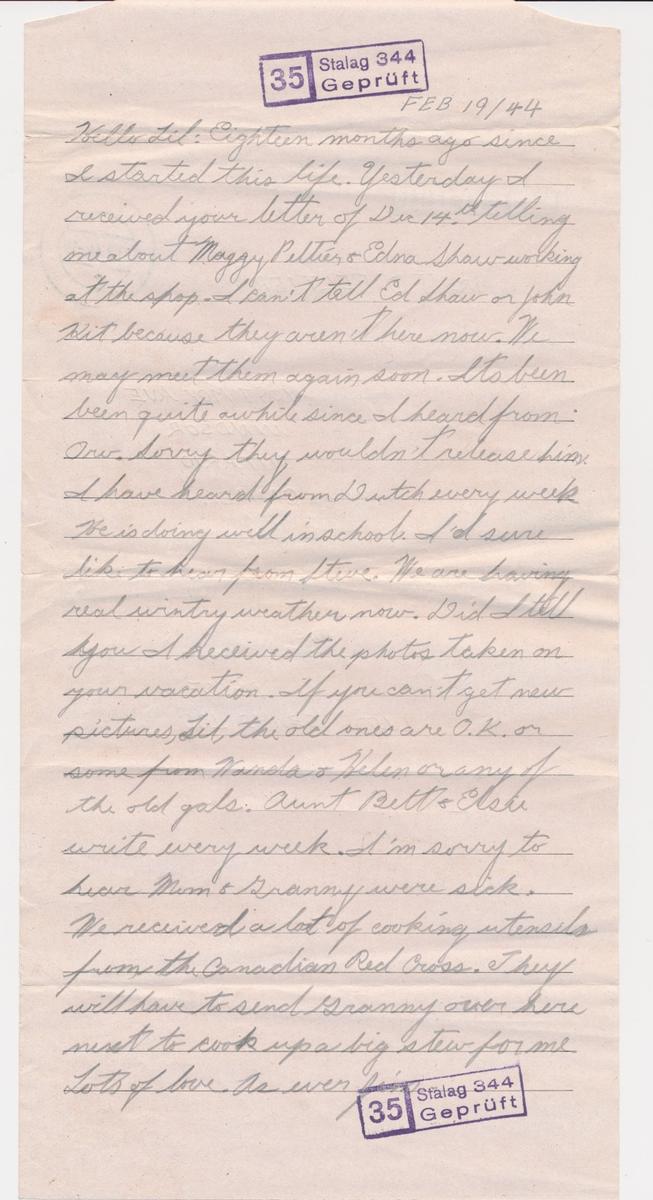 35 Stalag 344
Geprüft
FEB 19/44
Hello Lil: Eighteen months ago since
I started this life. Yesterday I
received your letter of Dec 14th telling
me about Maggy Peltier & Edna Shaw working
at the shop. I can't tell Ed Shaw or John
Kit because they aren't here now. We
may meet them again soon. Its been
been quite awhile since I heard from
Orv. Sorry they wouldn't release him.
I have heard from Dutch every week
He is doing well in school. I'd sure
like to hear from Steve. We are having
real wintry weather now. Did I tell
you I received the photos taken on
your vacation. If you can't get new
pictures, Lil, the old ones are O.K. or
some from Wanda & Helen or any of
the old gals. Aunt Bell & Elsie
write every week. I'm sorry to
hear Mom & Granny were sick.
We received a lot of cooking utensils
from the Canadian Red Cross. They
will have to send Granny over here
next to cook up a big stew for me
Lots of love. As ever
35 Stalag 344
Geprüft